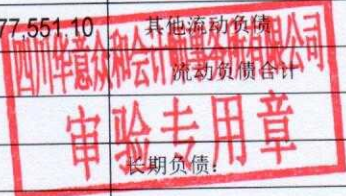 77,551.10 其他流动负债
四川华意众和会计师事务所有限公司
流动负债合计
审验专用章
长期负债: